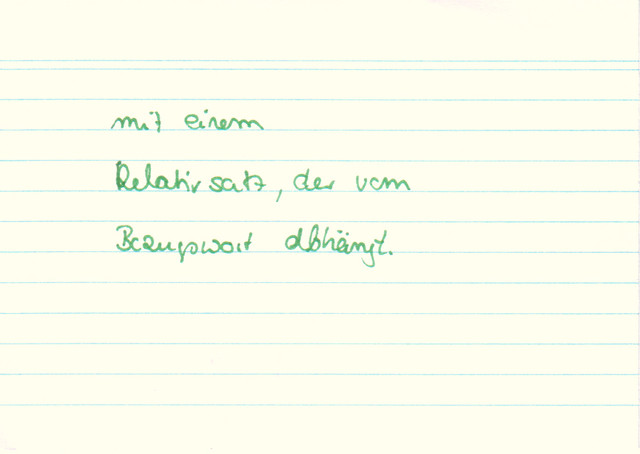 mit einem
Relativsatz, der vom
Bezugswort abhängt.